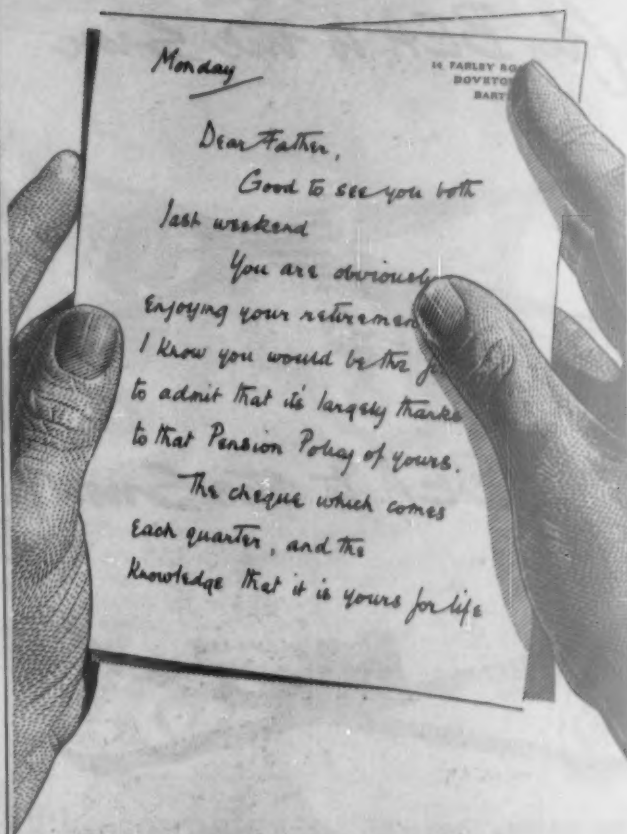 Monday
14 FARLEY RO
DOVETO
BART
Dear Father,
Good to see you both
last weekend
You are obviously
enjoying your retiremen
I know you would be the
to admit that it's largely thanks
to that Pension Policy of yours.
The cheque which comes
each quarter, and the
knowledge that it is yours for life